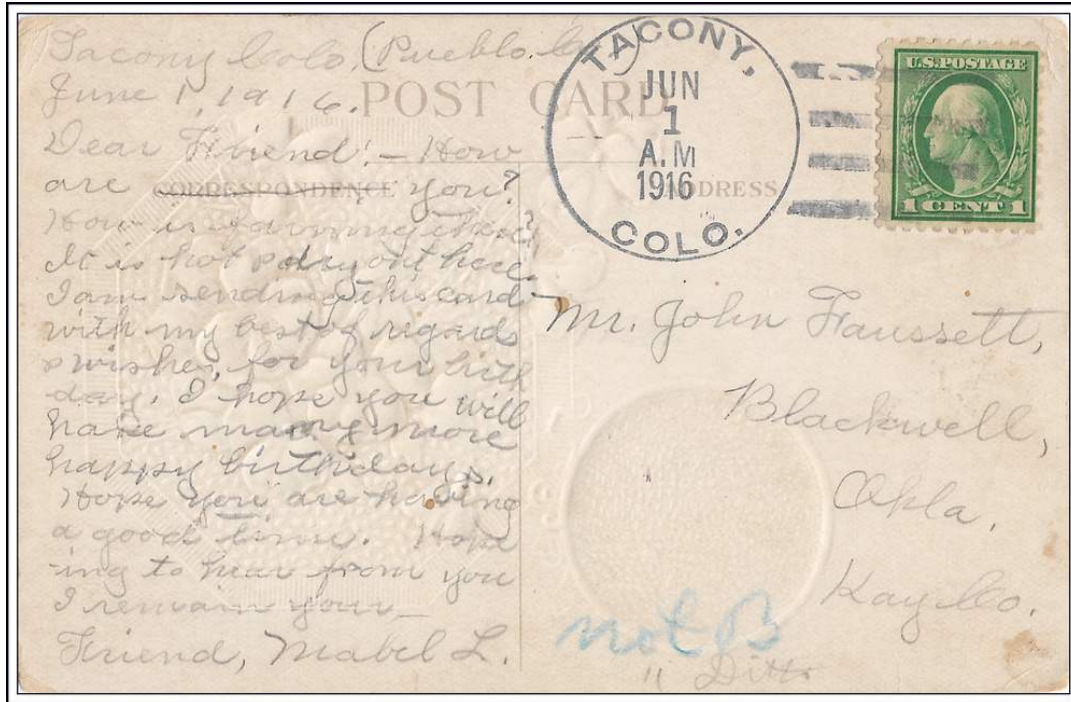 Tacony Colo. (Pueblo Co.
June 1, 1916.
POST CARD
Dear Friend! - How
are you?
CORRESPONDENCE
How is farming
It is hot & dry out here.
I am sending this card
with my best of regards
& wishes, for your birth
day. I hope you will
have many more
happy birthdays.
Hope you are having
a good time. Hop
-ing to hear from you
I remain your
Friend, Mabel L.
TACONY,
JUN
1
A.M
1916
COLO.
ADDRESS
U.S. POSTAGE
1 CENT 1
Mr. John Faussett,
Blackwell,
Okla.
Kay Co.
not B
" Ditto